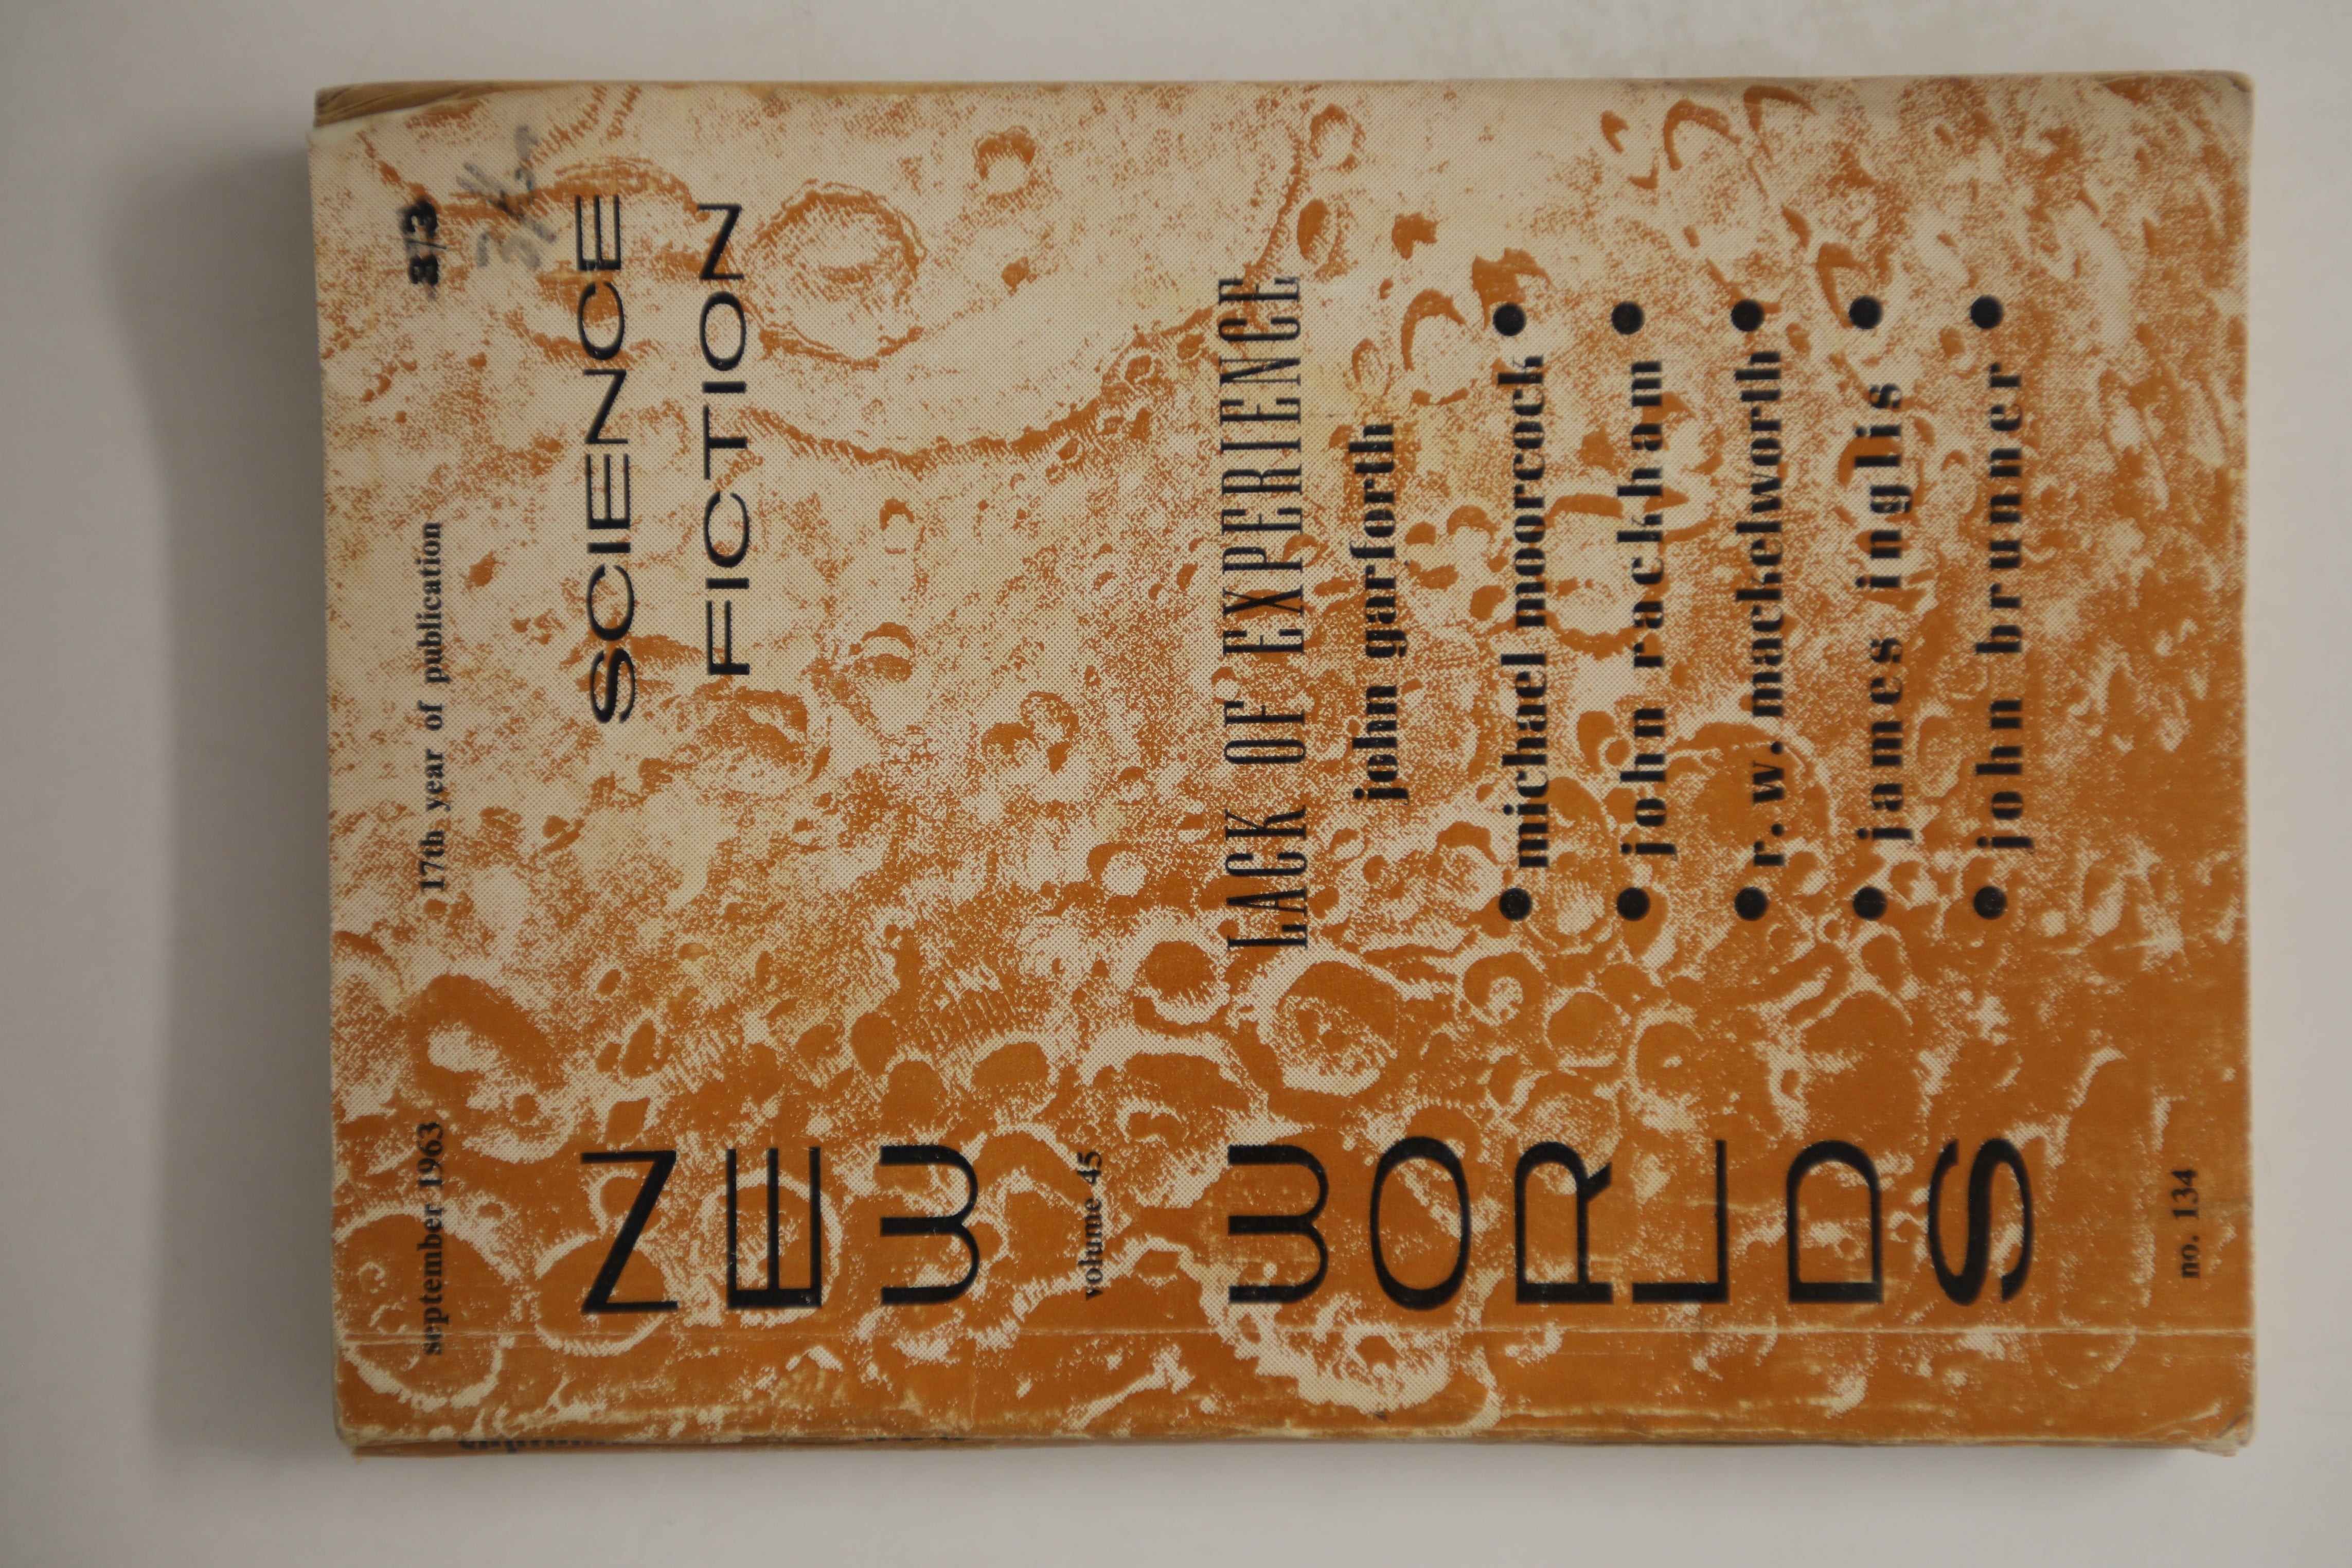 september 1963 17th year of publication 3/3
SCIENCE
FICTION
NEW
volume 45
WORLDS
LACK OF EXPERIENCE
john garforth
• michael moorcock •
• john rackham •
• r. w. mackelworth •
• james inglis •
• john brunner •
no. 134